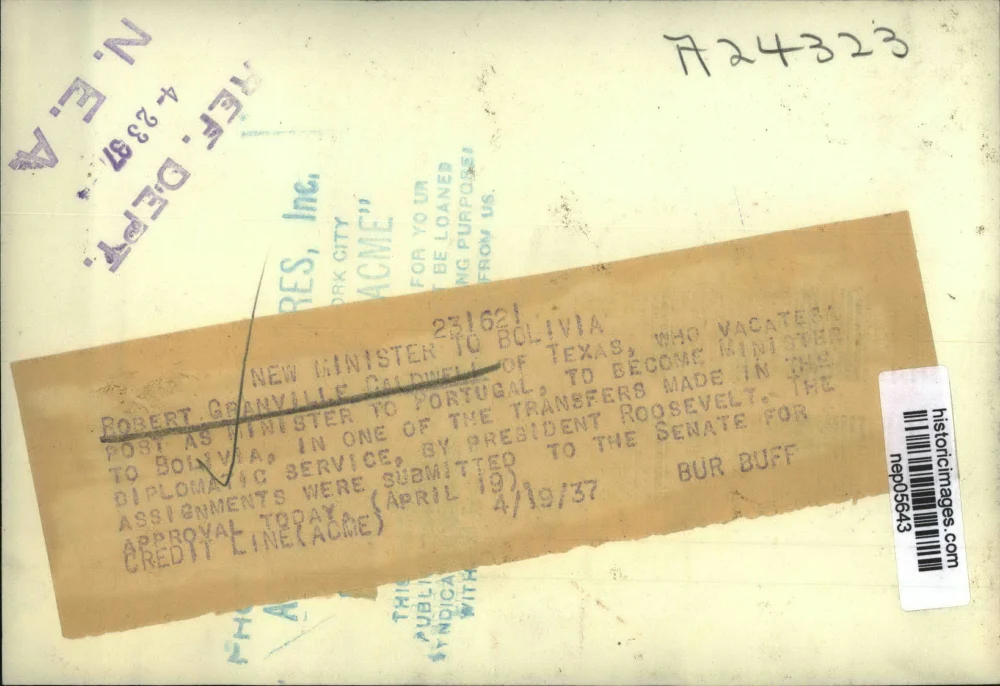 A24323
N. E. A.
4-23 37
REF. DEPT.
RES, Inc,
ORK CITY
ACME"
FOR YOUR
BE LOANED
NG PURPOSES
FROM US.
231621
NEW MINISTER TO BOLIVIA
ROBERT GRANVILLE CALDWELL OF TEXAS, WHO VACATES A
POST AS MINISTER TO PORTUGAL, TO BECOME MINISTER
TO BOLIVIA, IN ONE OF THE TRANSFERS MADE IN THE
DIPLOMATIC SERVICE, BY PRESIDENT ROOSEVELT. THE
ASSIGNMENTS WERE SUBMITTED TO THE SENATE FOR
APPROVAL TODAY. (APRIL 19)
CREDIT LINE(ACME) 4/19/37 BUR BUFF
THIS
PUBLI
SYNDICA
WITH
historicimages.com
nep05643